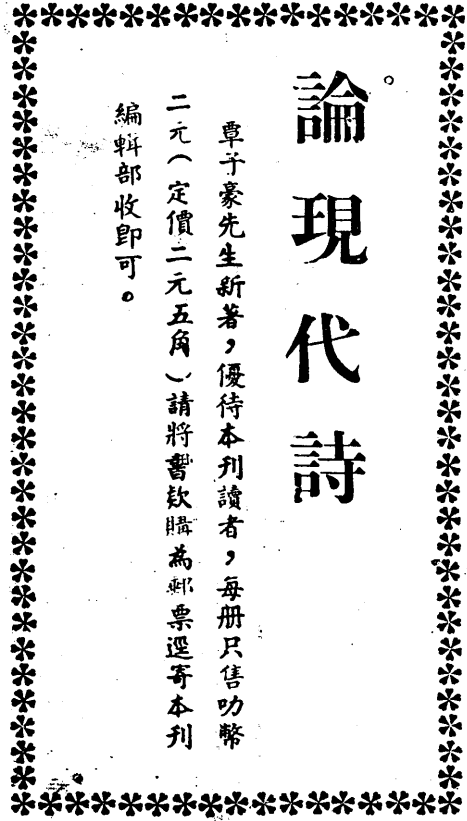 論現代詩
覃子豪先生新著，優待本刊讀者，每册只售叻幣
二元（定價二元五角）請將書欵購為郵票逕寄本刊
編輯部收即可。